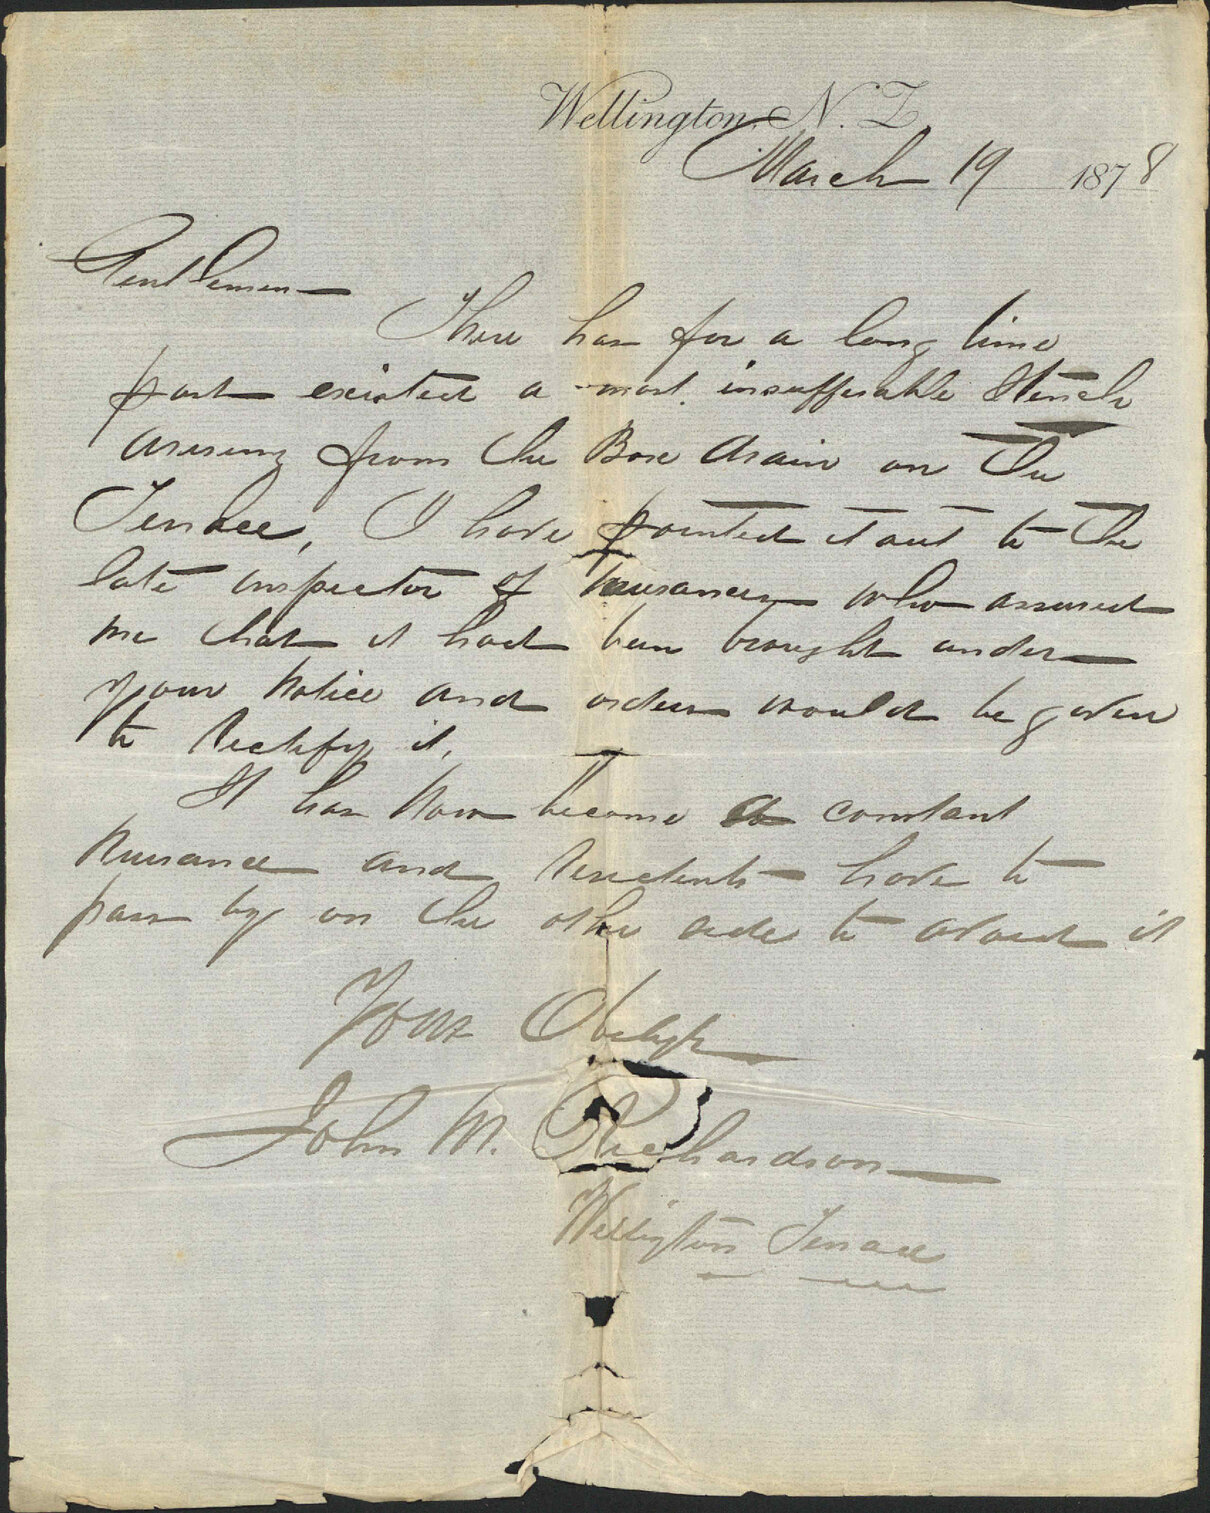 Wellington, N. Z.
March 19 1878
Gentlemen
There has for a long time
past existed a most insufferable stench
arising from the Box drain on the
Terrace, I have pointed it out to the
late inspector of nuisances who assured
me that it had been brought under
your notice and orders would be given
to rectify it.
It has now become a constant
nuisance and residents have to
pass by on the other side to avoid it
Yours Obedly
John M. Richardson
Wellington Terrace